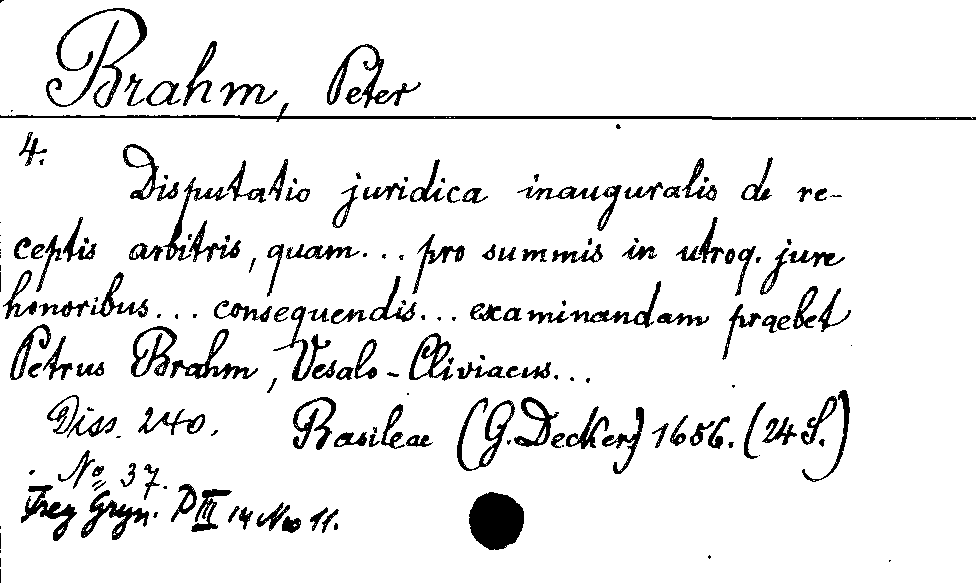 Brahm, Peter
4.
Disputatio juridica inauguralis de re-
ceptis arbitris, quam... pro summis in utroq. jure
honoribus... consequendis... examinandam praebet
Petrus Brahm, Vesalo-Cliviacus...
Diss. 240. Basileae (G. Decker) 1656. (24 S.)
No 37.
Frey Gryn. P III 14 No 11.